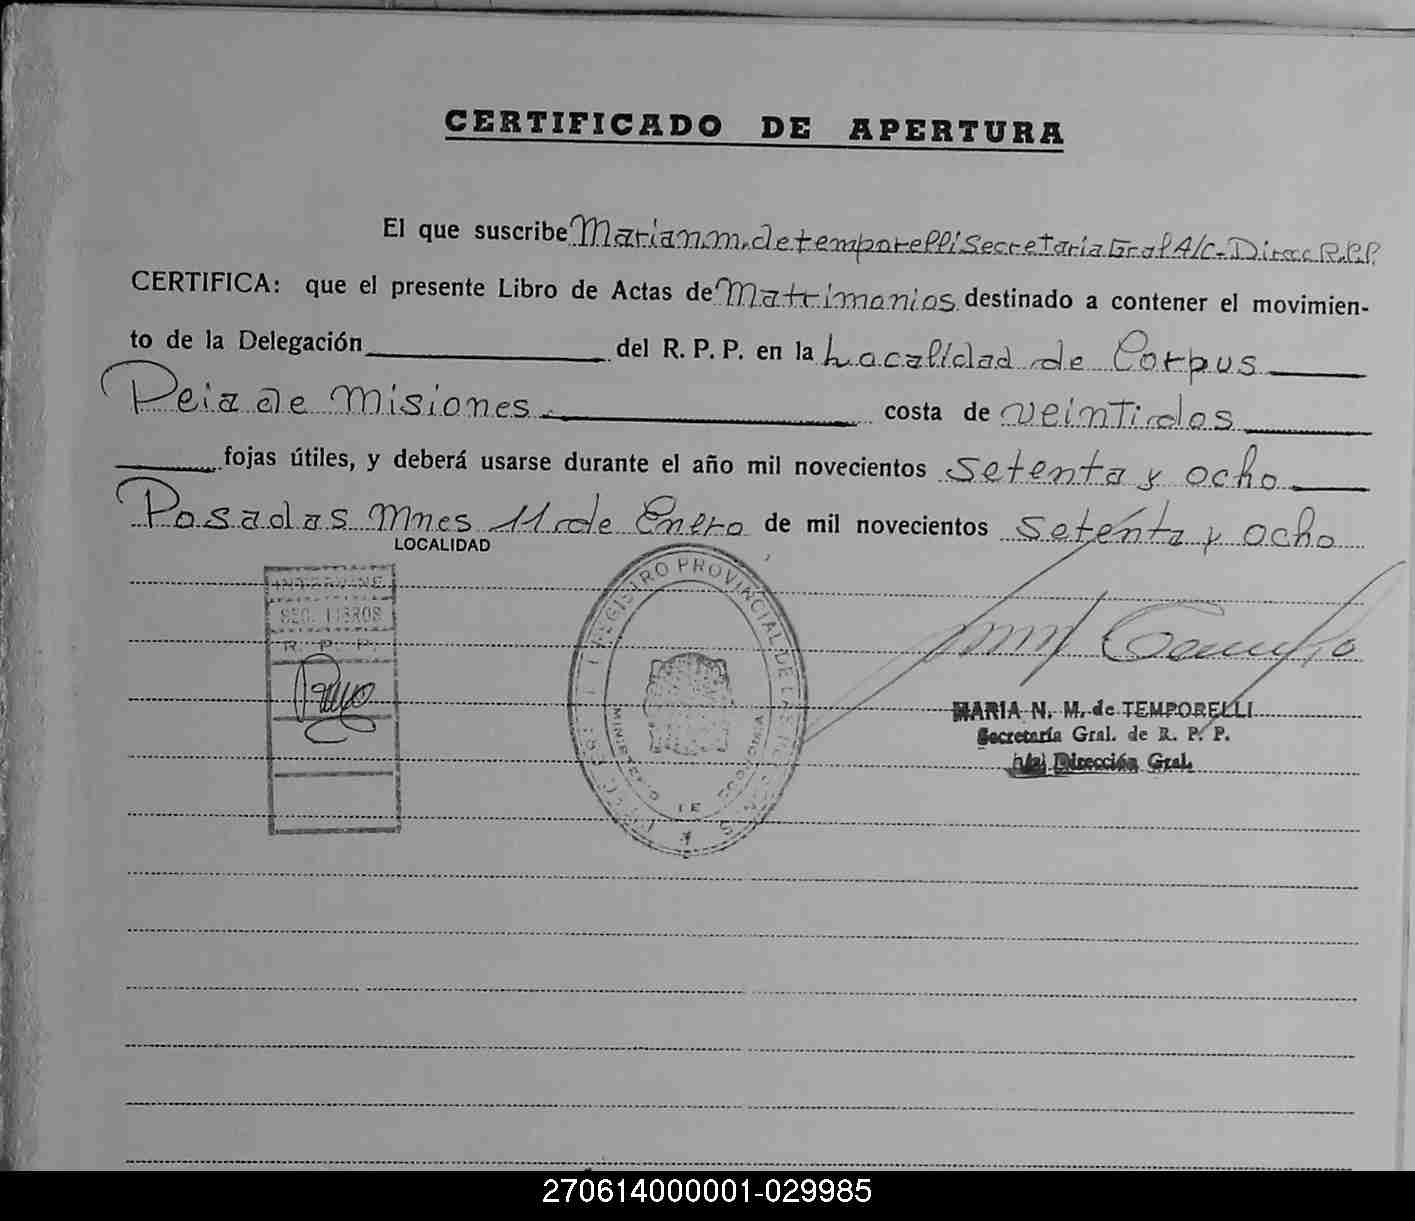 CERTIFICADO DE APERTURA
El que suscribe Maria n.m. de temporelli Secretaria Gral A/C. Direcc R.P.P.
CERTIFICA: que el presente Libro de Actas de Matrimonios destinado a contener el movimien-
to de la Delegación del R. P. P. en la Localidad de Corpus
Pcia de Misiones costa de veintidos
fojas útiles, y deberá usarse durante el año mil novecientos setenta y ocho
Posadas Mnes 11 de Enero de mil novecientos setenta y ocho
LOCALIDAD
SEC. LIBROS
R. P. P.
REGISTRO PROVINCIAL DE LAS
MINISTERIO DE ECONOMIA
MARIA N. M. de TEMPORELLI
Secretaria Gral. de R. P. P.
Dirección Gral.
270614000001-029985